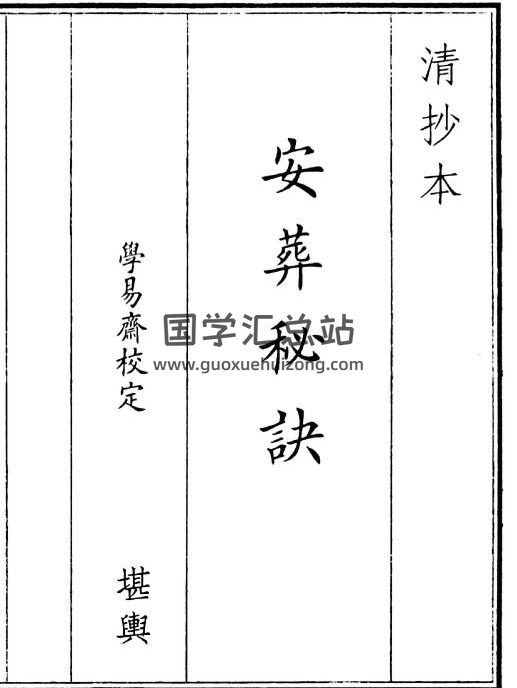 清抄本
安葬秘訣
學易齋校定
堪輿
国学汇总站
www.guoxuehuizong.com